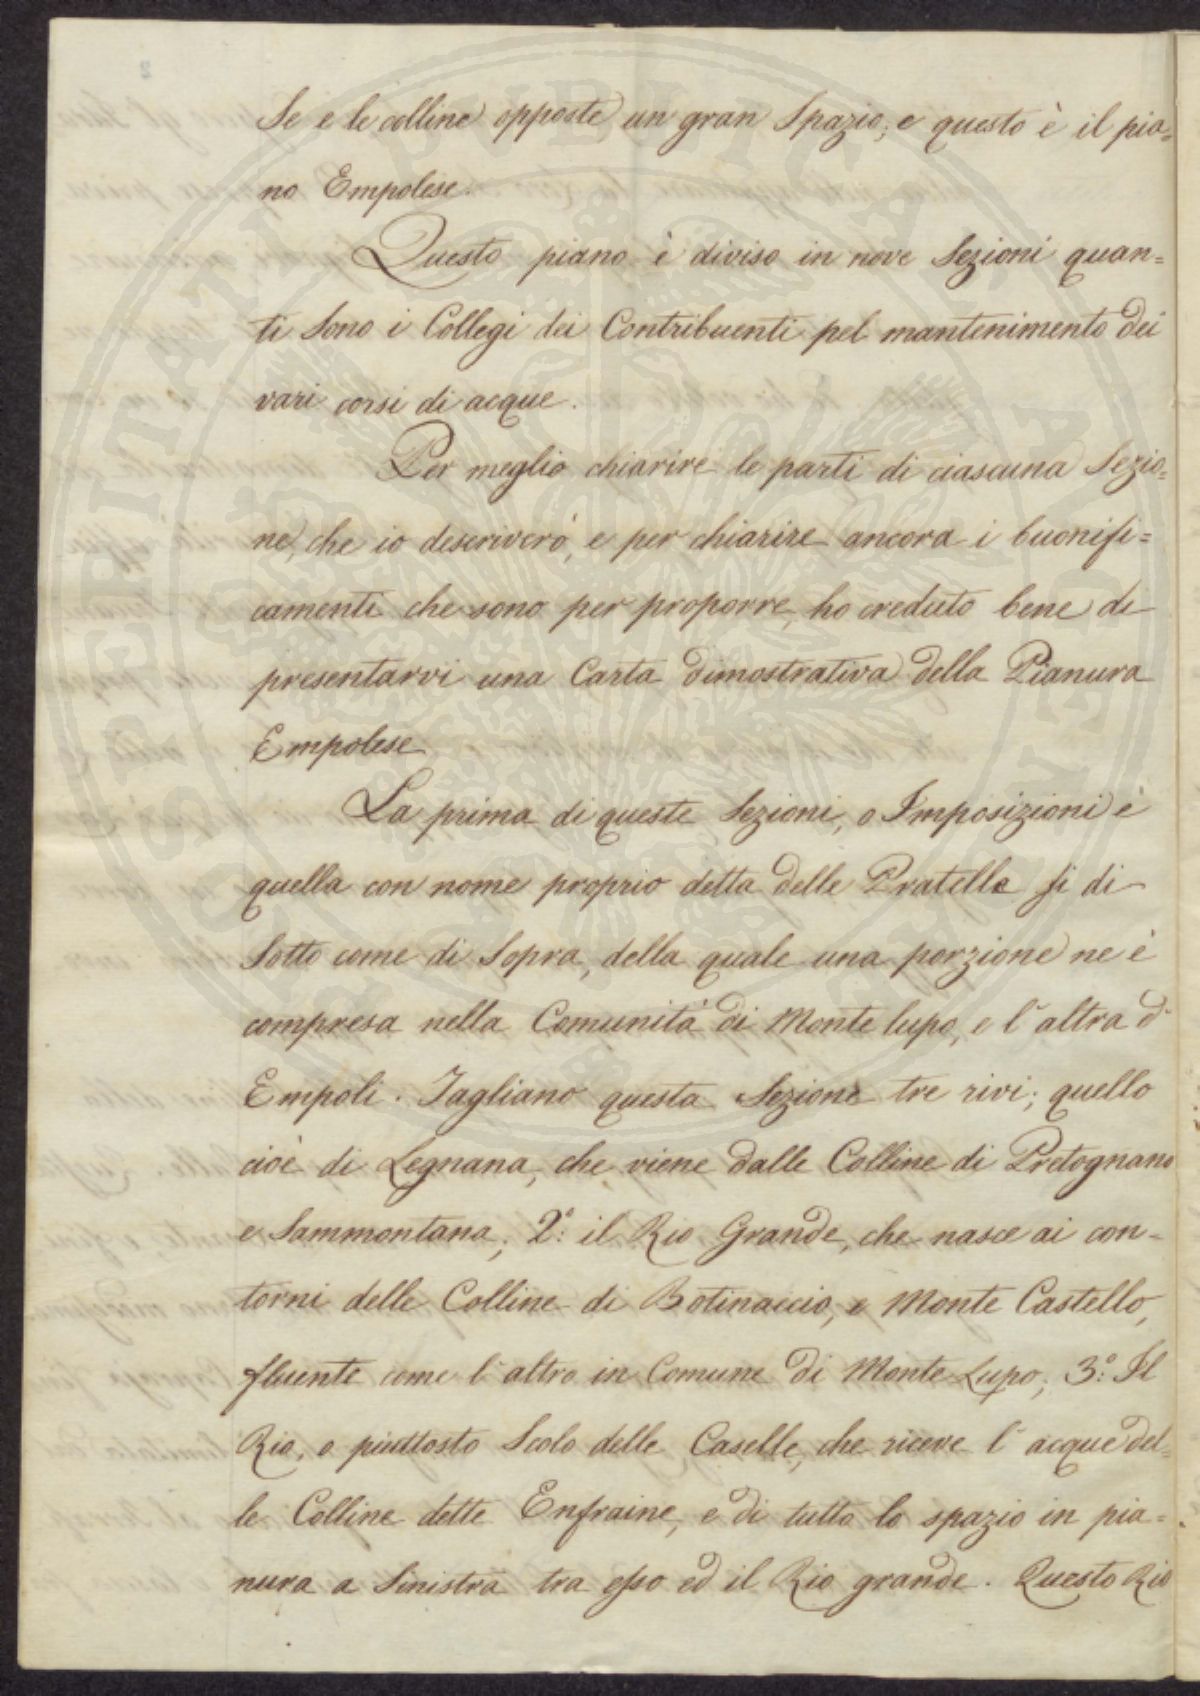 Se e le colline opposte un gran Spazio; e questo è il pia=
no Empolese.
Questo piano è diviso in nove Sezioni quan=
ti Sono i Collegi dei Contribuenti pel mantenimento dei
vari corsi di acque.
Per meglio chiarire le parti di ciascuna Sezio=
ne, che io descriverò, e per chiarire ancora i buonifi=
camenti che sono per proporre, ho creduto bene di
presentarvi una Carta dimostrativa della Pianura
Empolese
La prima di queste Sezioni, o Imposizioni è
quella con nome proprio detta delle Pratella si di
Sotto come di Sopra, della quale una porzione ne è
compresa nella Comunità di Monte lupo, e l'altra d'
Empoli. Tagliano questa Sezione tre rivi; quello
cioè di Legnana, che viene dalle Colline di Pretognano
e Sammontana; 2º: il Rio Grande, che nasce ai con=
torni delle Colline di Botinaccio, e Monte Castello,
fluente come l'altro in Comune di Monte Lupo; 3º: Il
Rio, o piuttosto Scolo delle Caselle, che riceve l'acque del=
le Colline dette Enfraine, e di tutto lo spazio in pia=
nura a Sinistra tra esso ed il Rio grande. Questo Rio